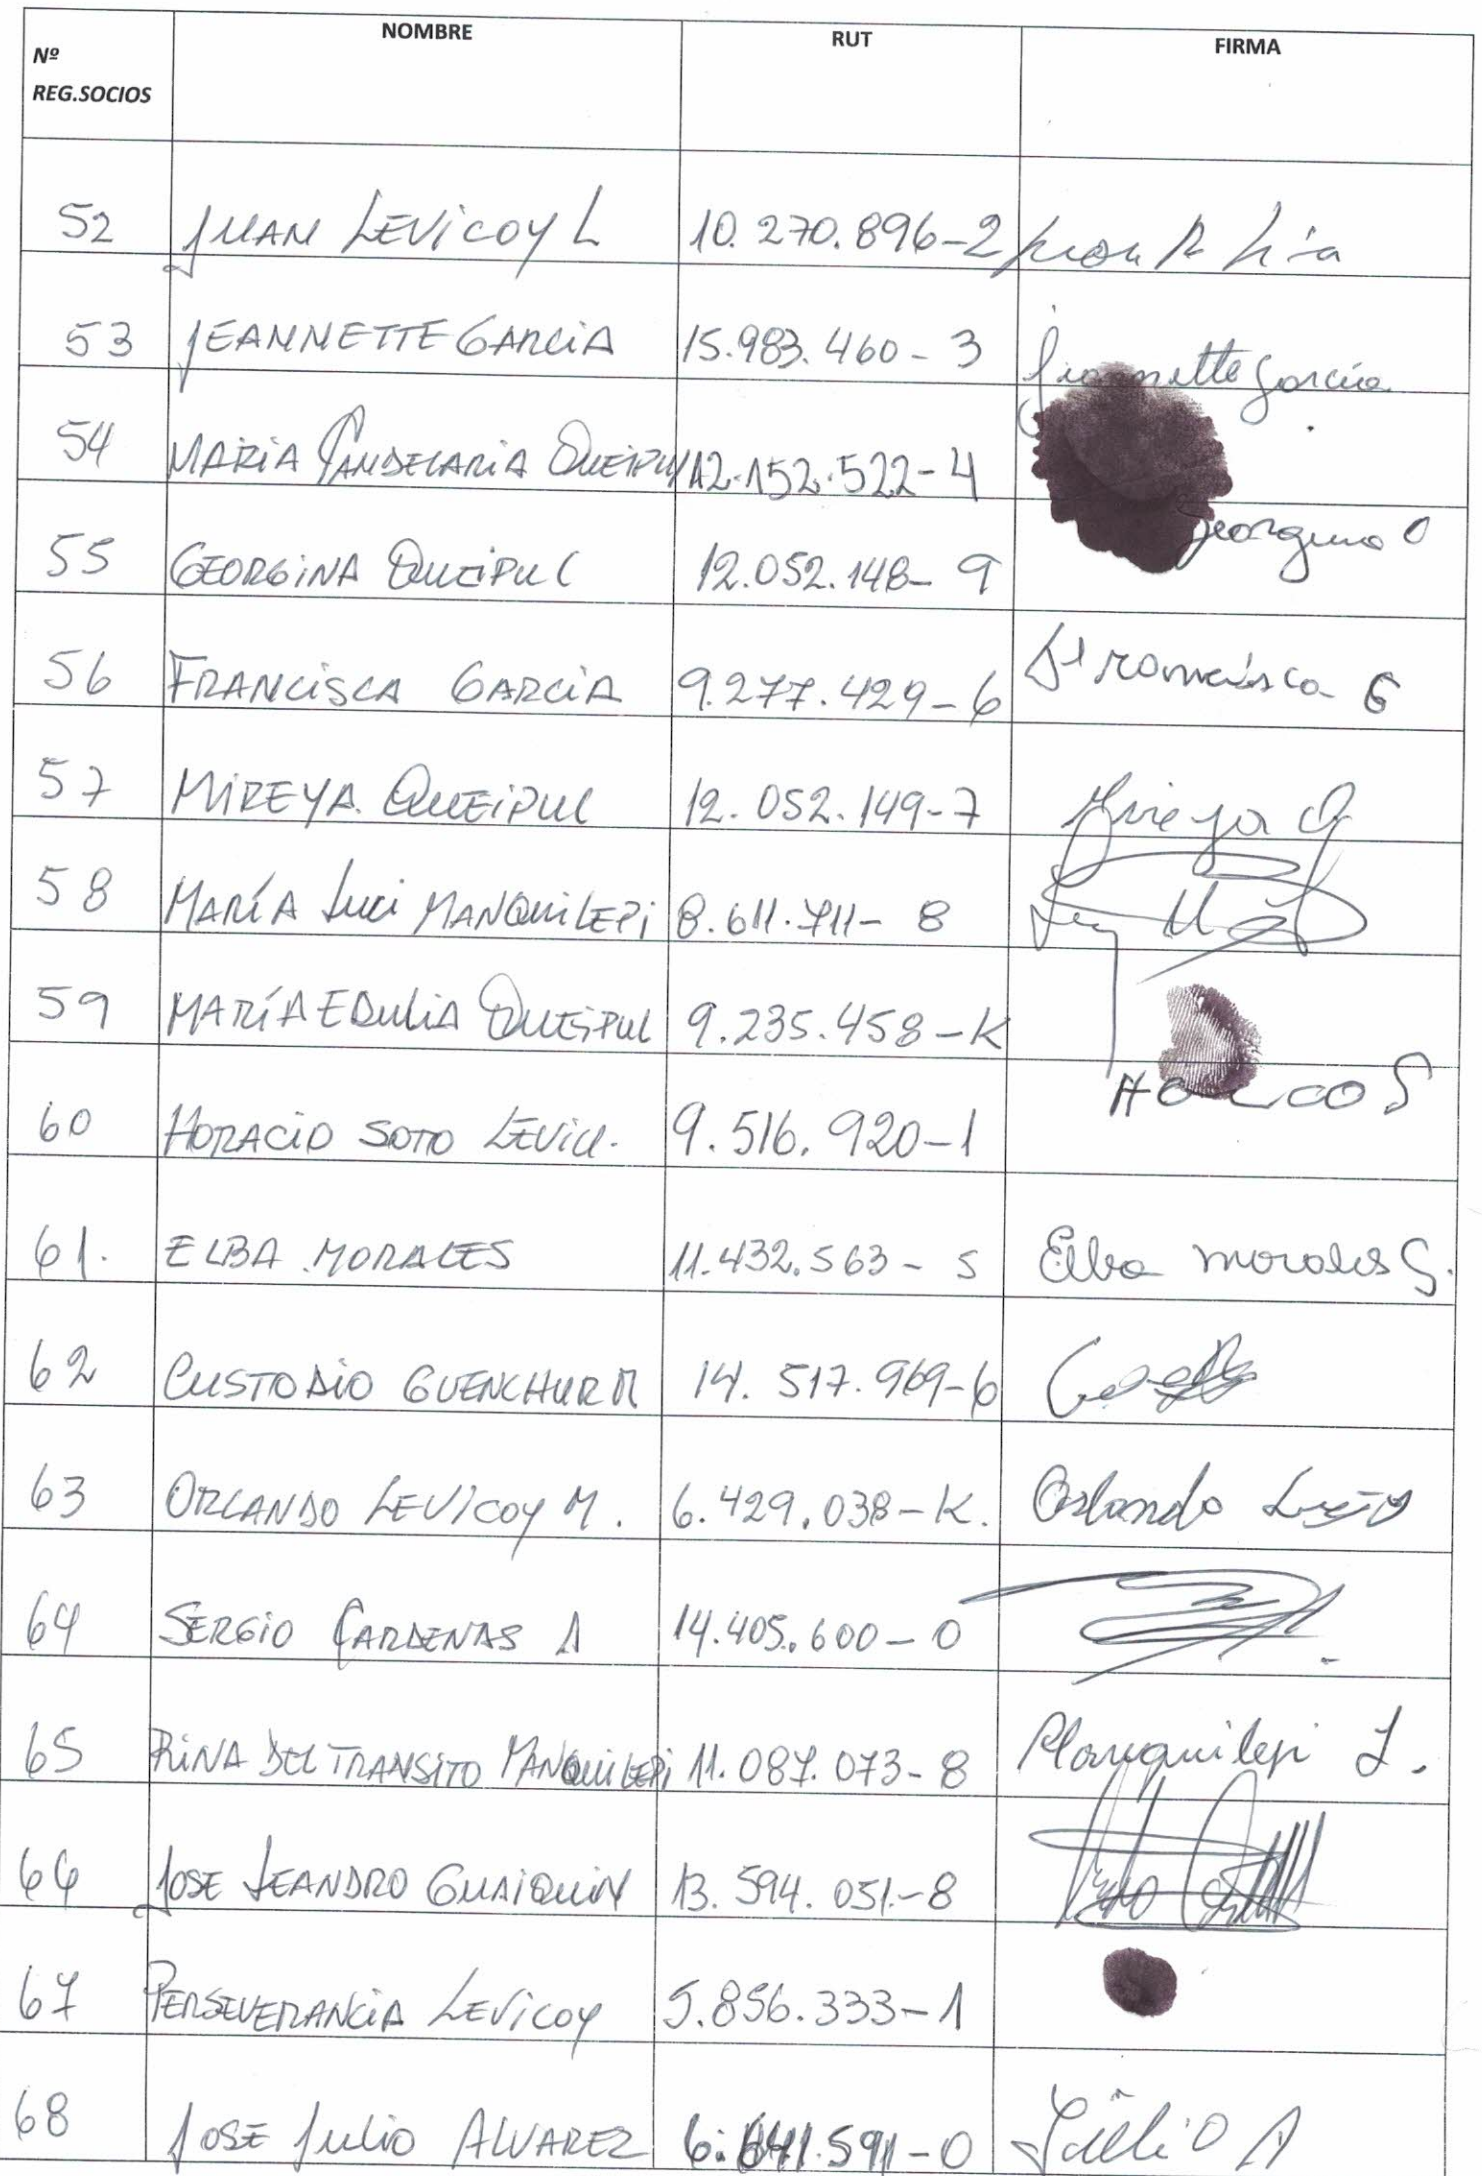 Nº REG.SOCIOS NOMBRE RUT FIRMA
52 JUAN LEVICOY L 10.270.896-2
53 JEANNETTE GARCIA 15.983.460-3 Jeannette García
54 MARIA CANDELARIA QUEIPUL 12.152.522-4
55 GEORGINA QUEIPUL C 12.052.148-9 Georgina Q
56 FRANCISCA GARCIA 9.277.429-6 Francisca G
57 MIREYA QUEIPUL 12.052.149-7 Mireya Q
58 MARÍA Luci MANQUILEPI 8.611.711-8
59 MARÍA EDULIA QUEIPUL 9.235.458-K
60 HORACIO SOTO LEVICU. 9.516.920-1
61. ELBA MORALES 11.432.563-5 Elba Morales S.
62 CUSTODIO GUENCHUR M 14.517.969-6
63 ORLANDO LEVICOY M. 6.429.038-K. Orlando
64 SERGIO CARDENAS A 14.405.600-0
65 RINA DEL TRANSITO MANQUILEPI 11.087.073-8 Manquilepi L.
66 JOSE LEANDRO GUAIQUIN 13.594.051-8
67 PERSEVERANCIA LEVICOY 5.856.333-1
68 JOSE Julio ALVAREZ 6.641.591-0 Julio A